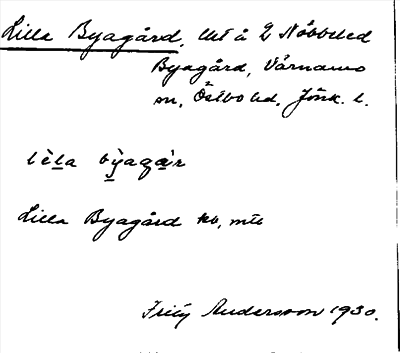 Lilla Byagård, lht å 2 Nöbbeled
Byagård, Värnamo
sn, Östbo hd, Jönk. l.
lèla bỳagàr
Lilla Byagård kb, mtb
Fritz Andersson 1930.